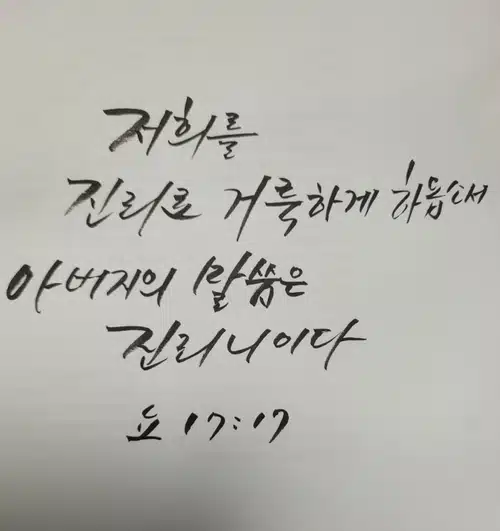 저희를
진리로 거룩하게 하옵소서
아버지의 말씀은
진리니이다
요 17:17